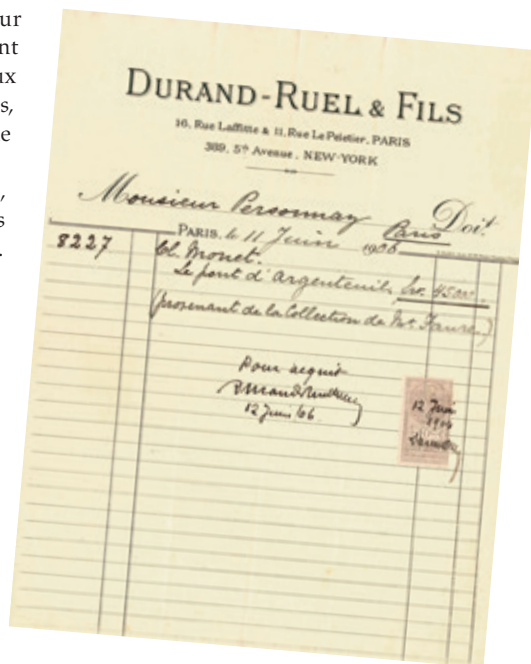 ur
nt
ux
s,
e
,
s
.
DURAND-RUEL & FILS
16, Rue Laffitte & 11, Rue Le Peletier, PARIS
389, 5th Avenue, NEW-YORK
Monsieur Personnaz Doit
Paris
PARIS, le 11 Juin 1906
8227 Cl. Monet.
Le pont d'Argenteuil, frs. 45000.
(provenant de la Collection de Mr. Faure)
Pour acquit
Durand Ruel
12 Juin 06.
12 Juin